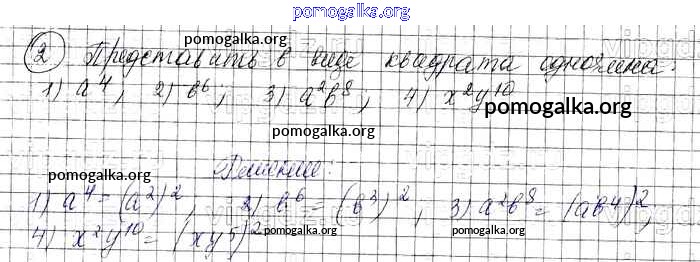 pomogalka.org
2 Представить в виде квадрата одночлена:
pomogalka.org
1) a⁴, 2) b⁶; 3) a²b⁸; 4) x²y¹⁰
pomogalka.org
pomogalka.org
pomogalka.org
Решение:
1) a⁴ = (a²)², 2) b⁶ = (b³)², 3) a²b⁸ = (ab⁴)²,
pomogalka.org
4) x²y¹⁰ = (xy⁵)²
pomogalka.org
pomogalka.org